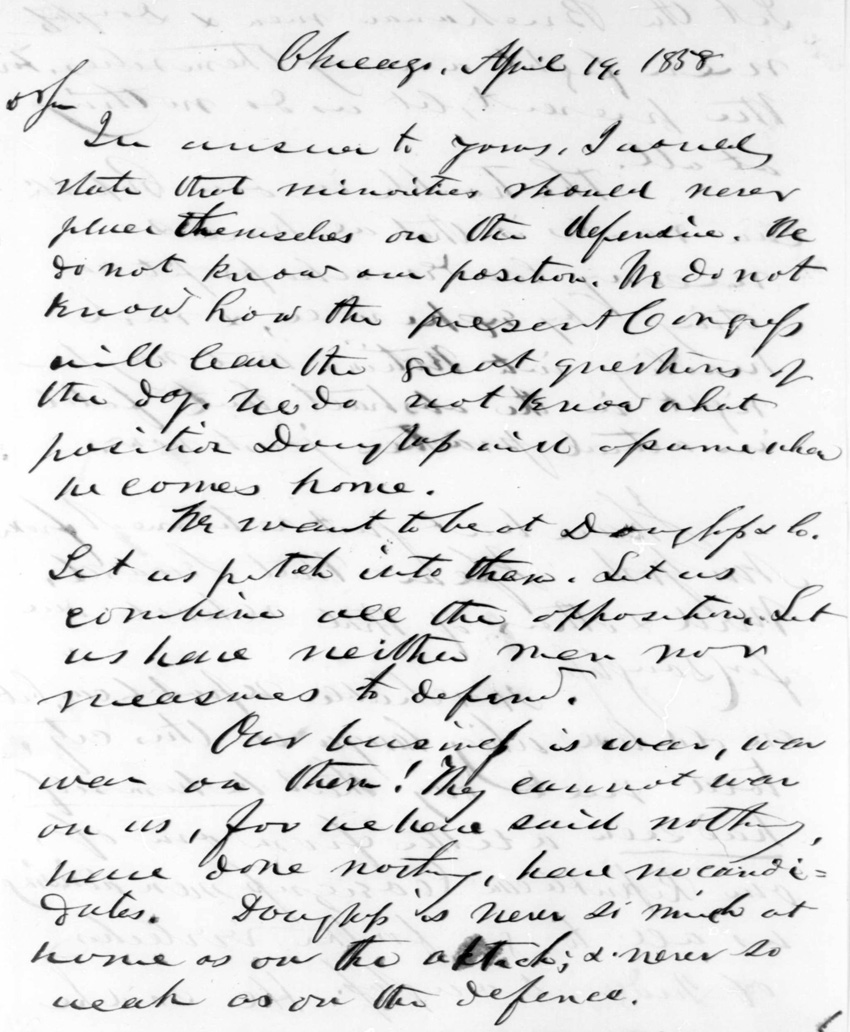 Chicago, April 19. 1858
Dr Sir
In answer to yours, I would
state that minorities should never
place themselves on the defensive. We
do not know our position. We do not
know how the present Congress
will leave the great questions of
the day. We do not know what
position Douglass will assume when
he comes home.
We want to beat Douglass & Co.
Let us pitch into them. Let us
combine all the opposition. Let
us have neither men nor
measures to defend.
Our business is war, war
war on them! They cannot war
on us, for we have said nothing,
have done nothing, have no candi=
dates. Douglass is never so much at
home as on the attack; & never so
weak as on the defence.